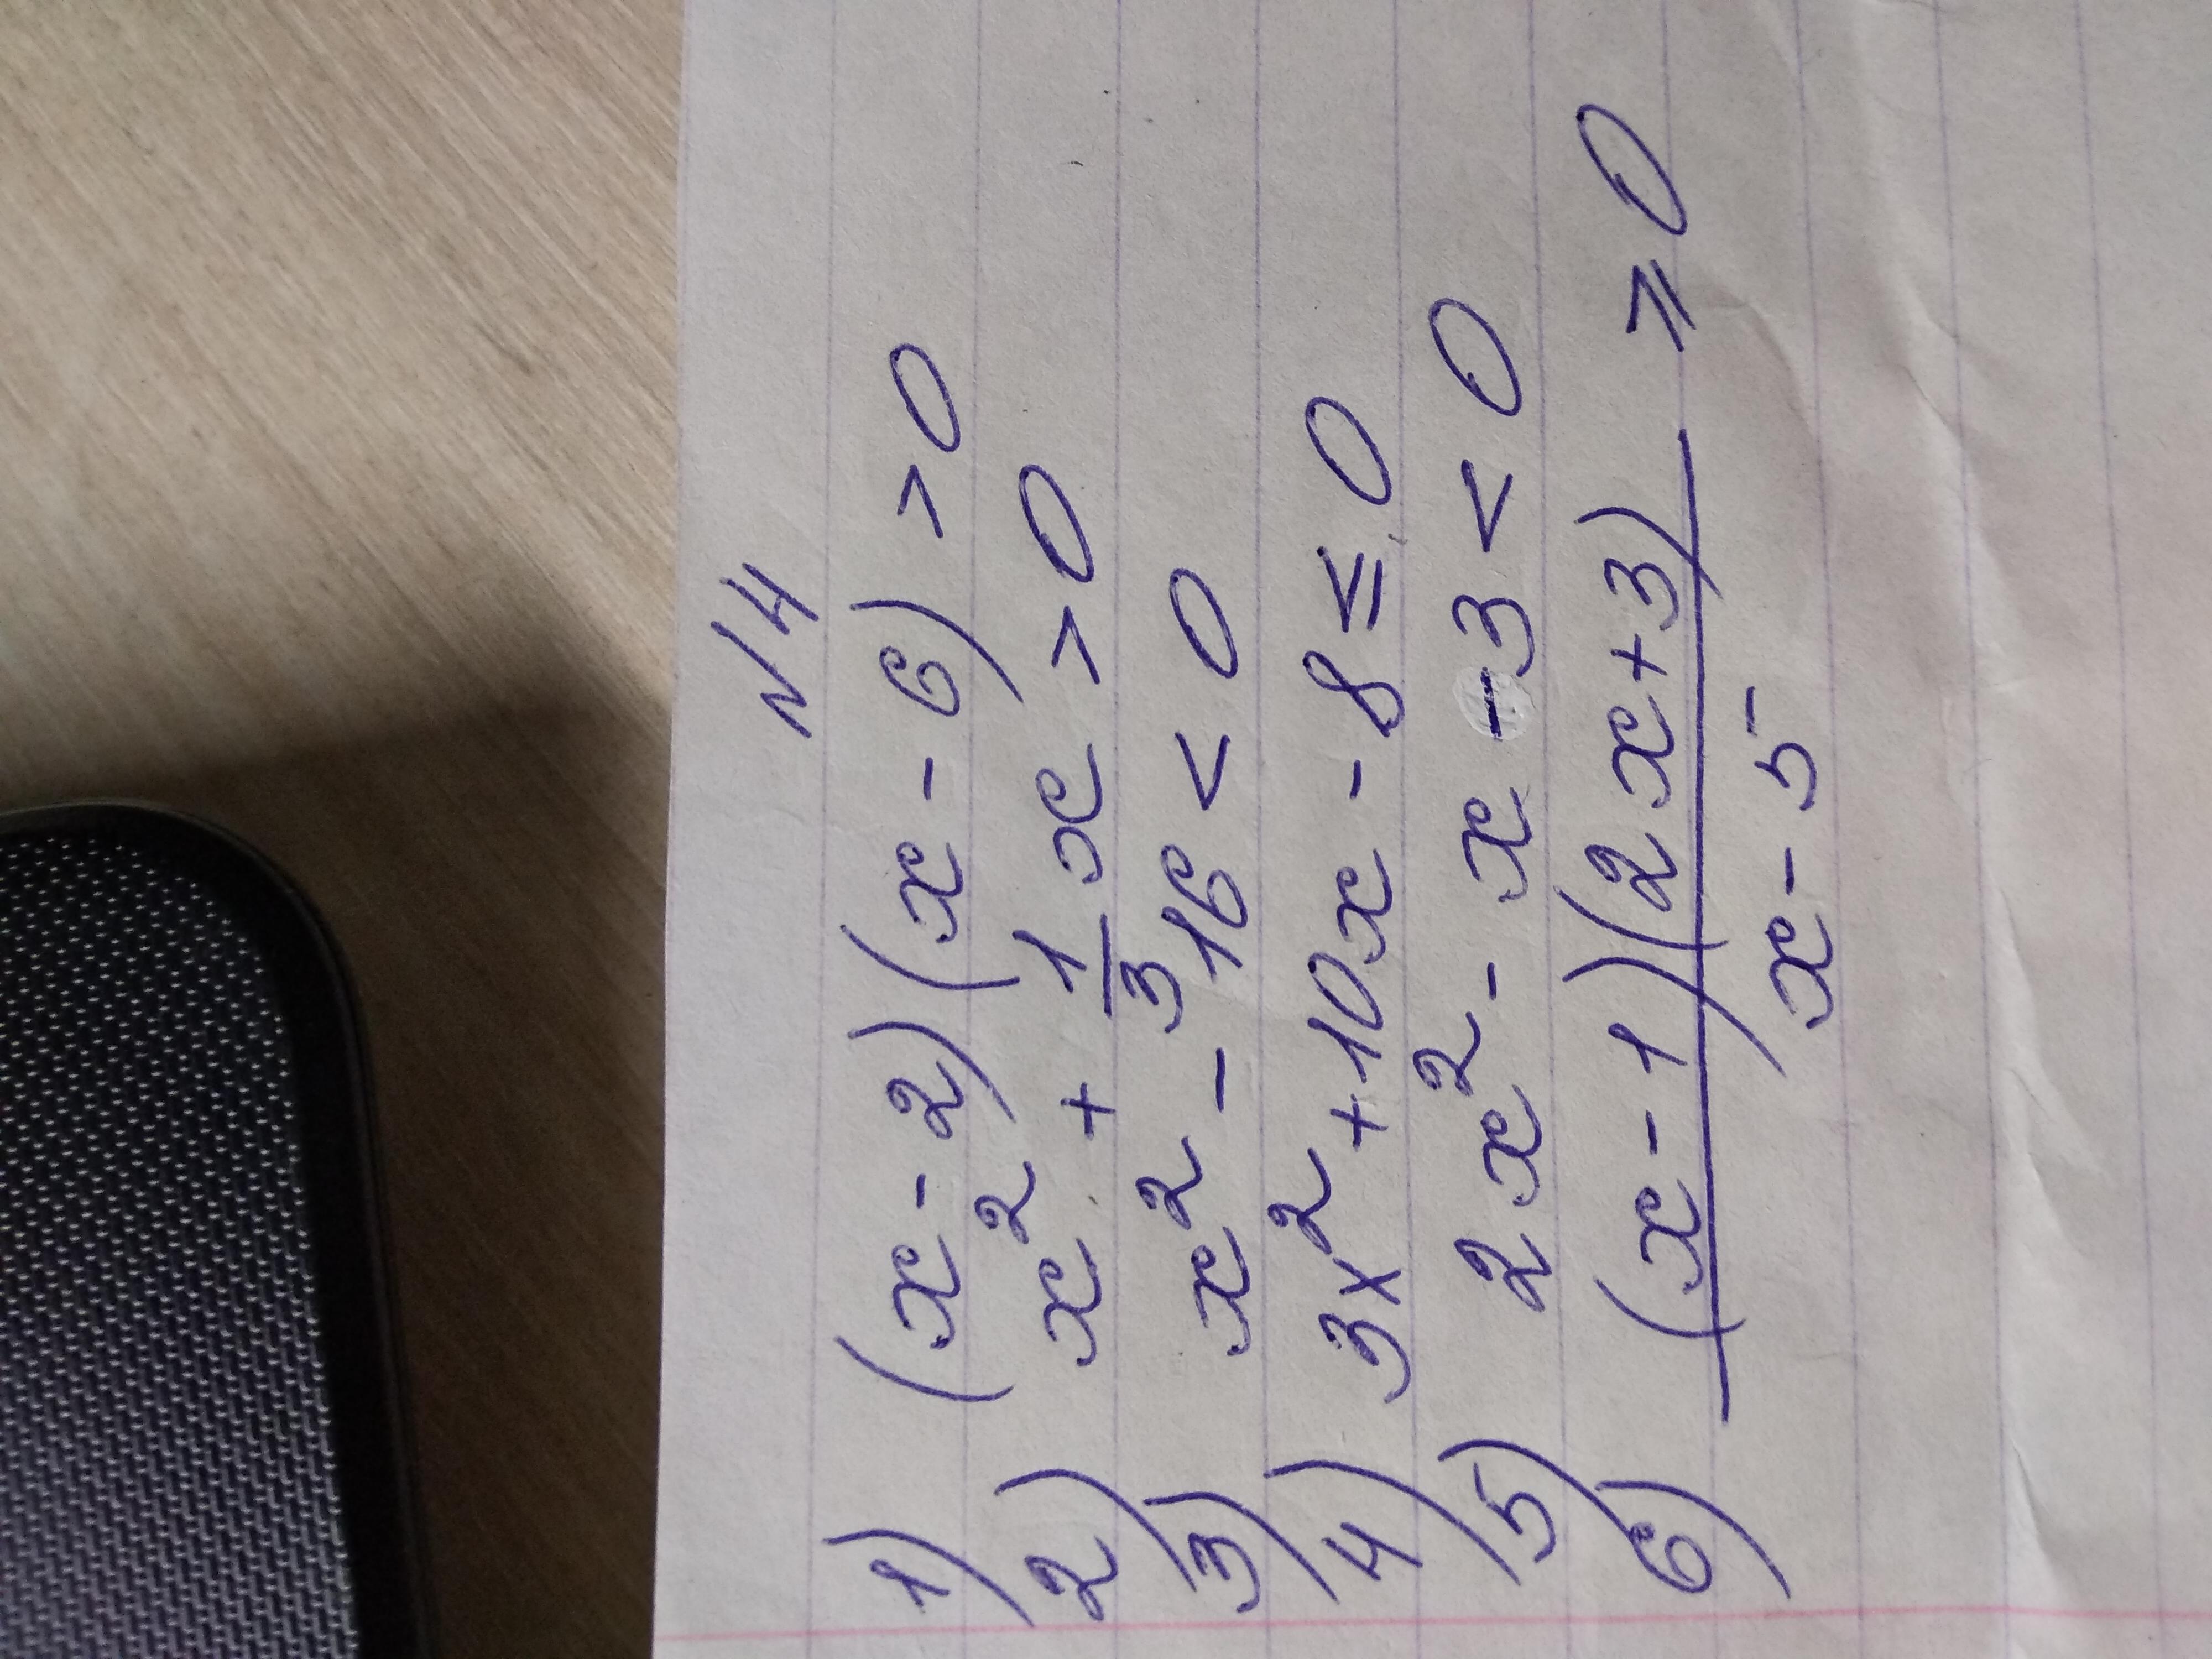 №4
1) (x-2)(x-6)>0
2) x² + 1/3 x > 0
3) x² - 16 < 0
4) 3x² + 10x - 8 ≤ 0
5) 2x² - x - 3 < 0
6) (x-1)(2x+3)/(x-5) ≥ 0